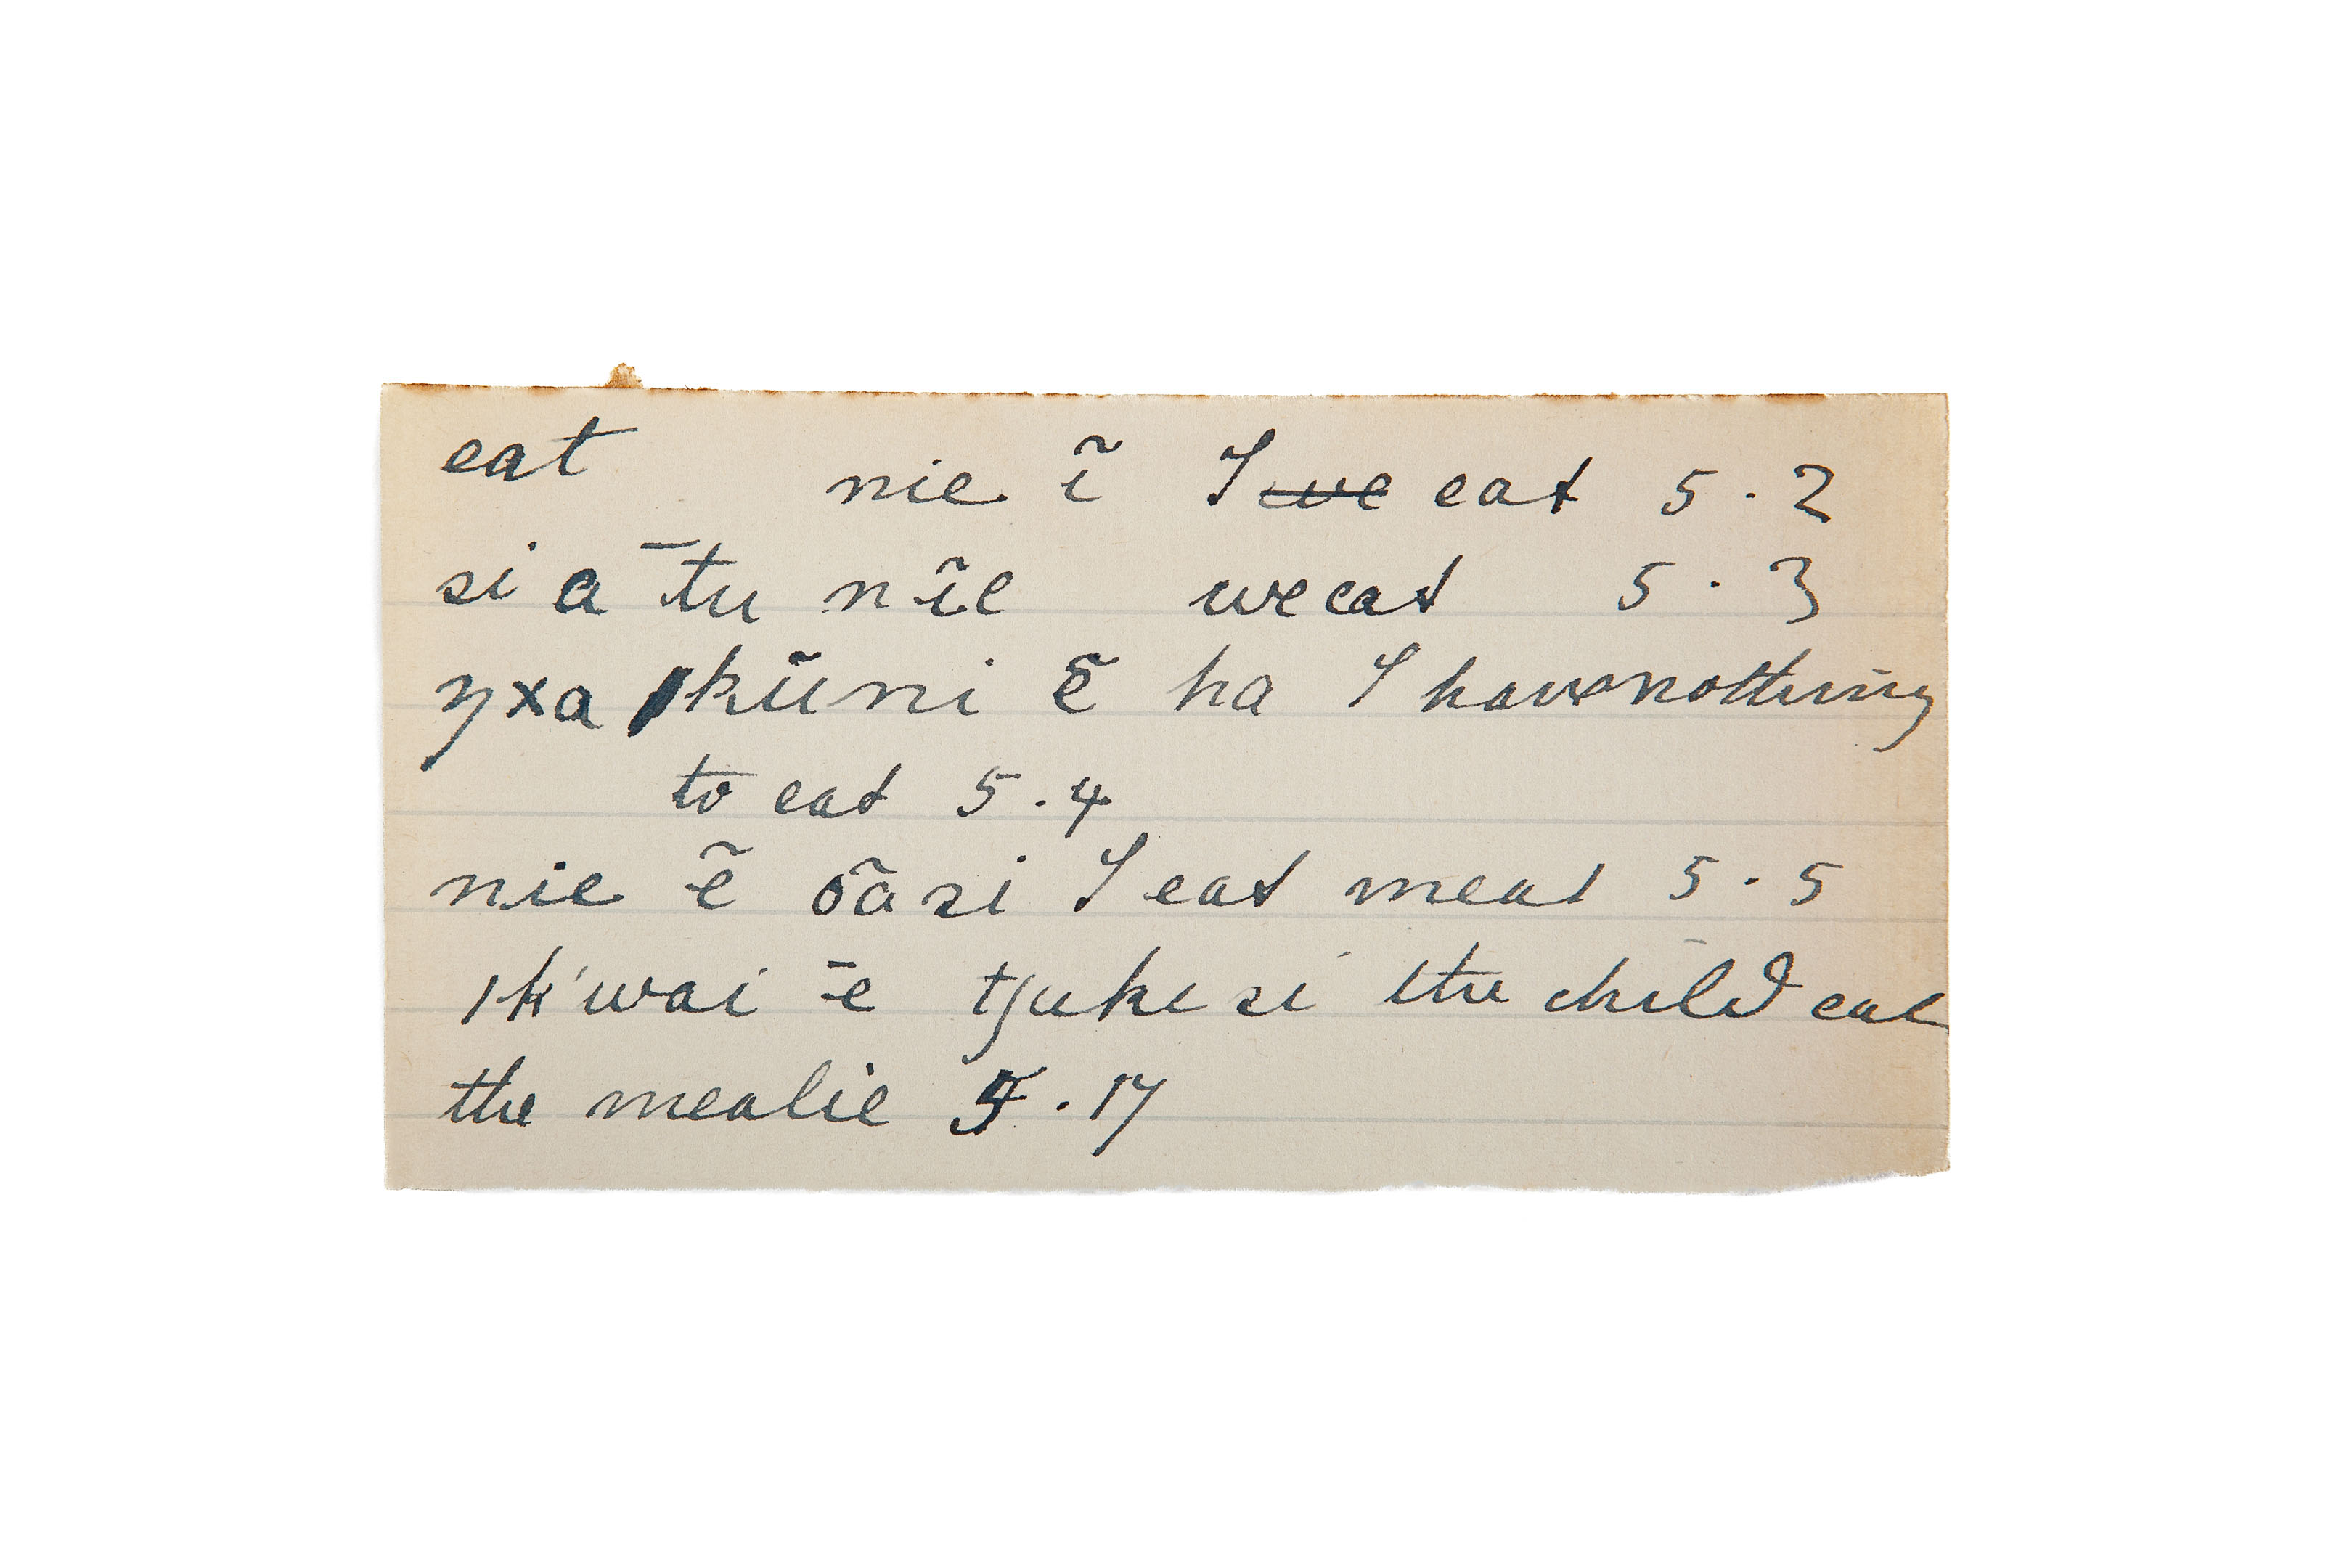 eat nie ĩ I ~~we~~ eat 5.2
si a tu nĩe we eat 5.3
ŋxa |kũni ẽ ha I have nothing
to eat 5.4
nie ẽ õasi I eat meat 5.5
ǀk'wai ē tʃukesi the child eat
the mealie 5.17